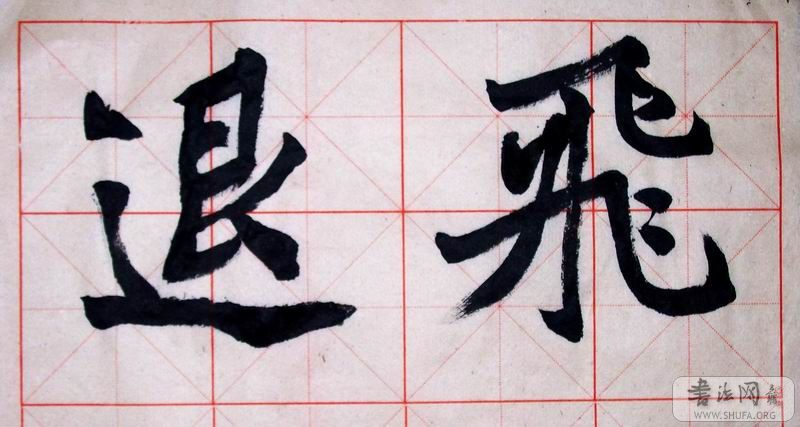 飛退
書法网
WWW.SHUFA.ORG